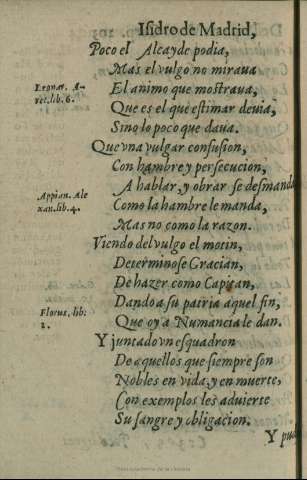 Isidro de Madrid,
Poco el Alcayde podia,
Mas el vulgo no miraua
Leonar. A-
ret. lib. 6.
El animo que mostraua,
Que es el que estimar deuia,
Sino lo poco que daua.
Que vna vulgar confusion,
Con hambre y persecucion,
A hablar, y obrar se desmanda
Appian. Ale
xan. lib. 4.
Como la hambre le manda,
Mas no como la razon.
Viendo del vulgo el motin,
Determinose Gracian,
De hazer como Capitan,
Dando a su patria aquel fin,
Florus, lib:
2.
Que oy a Numancia le dan.
Y juntado vn esquadron
De aquellos que siempre son
Nobles en vida, y en muerte,
Con exemplos les aduierte
Su sangre y obligacion.
Y pud